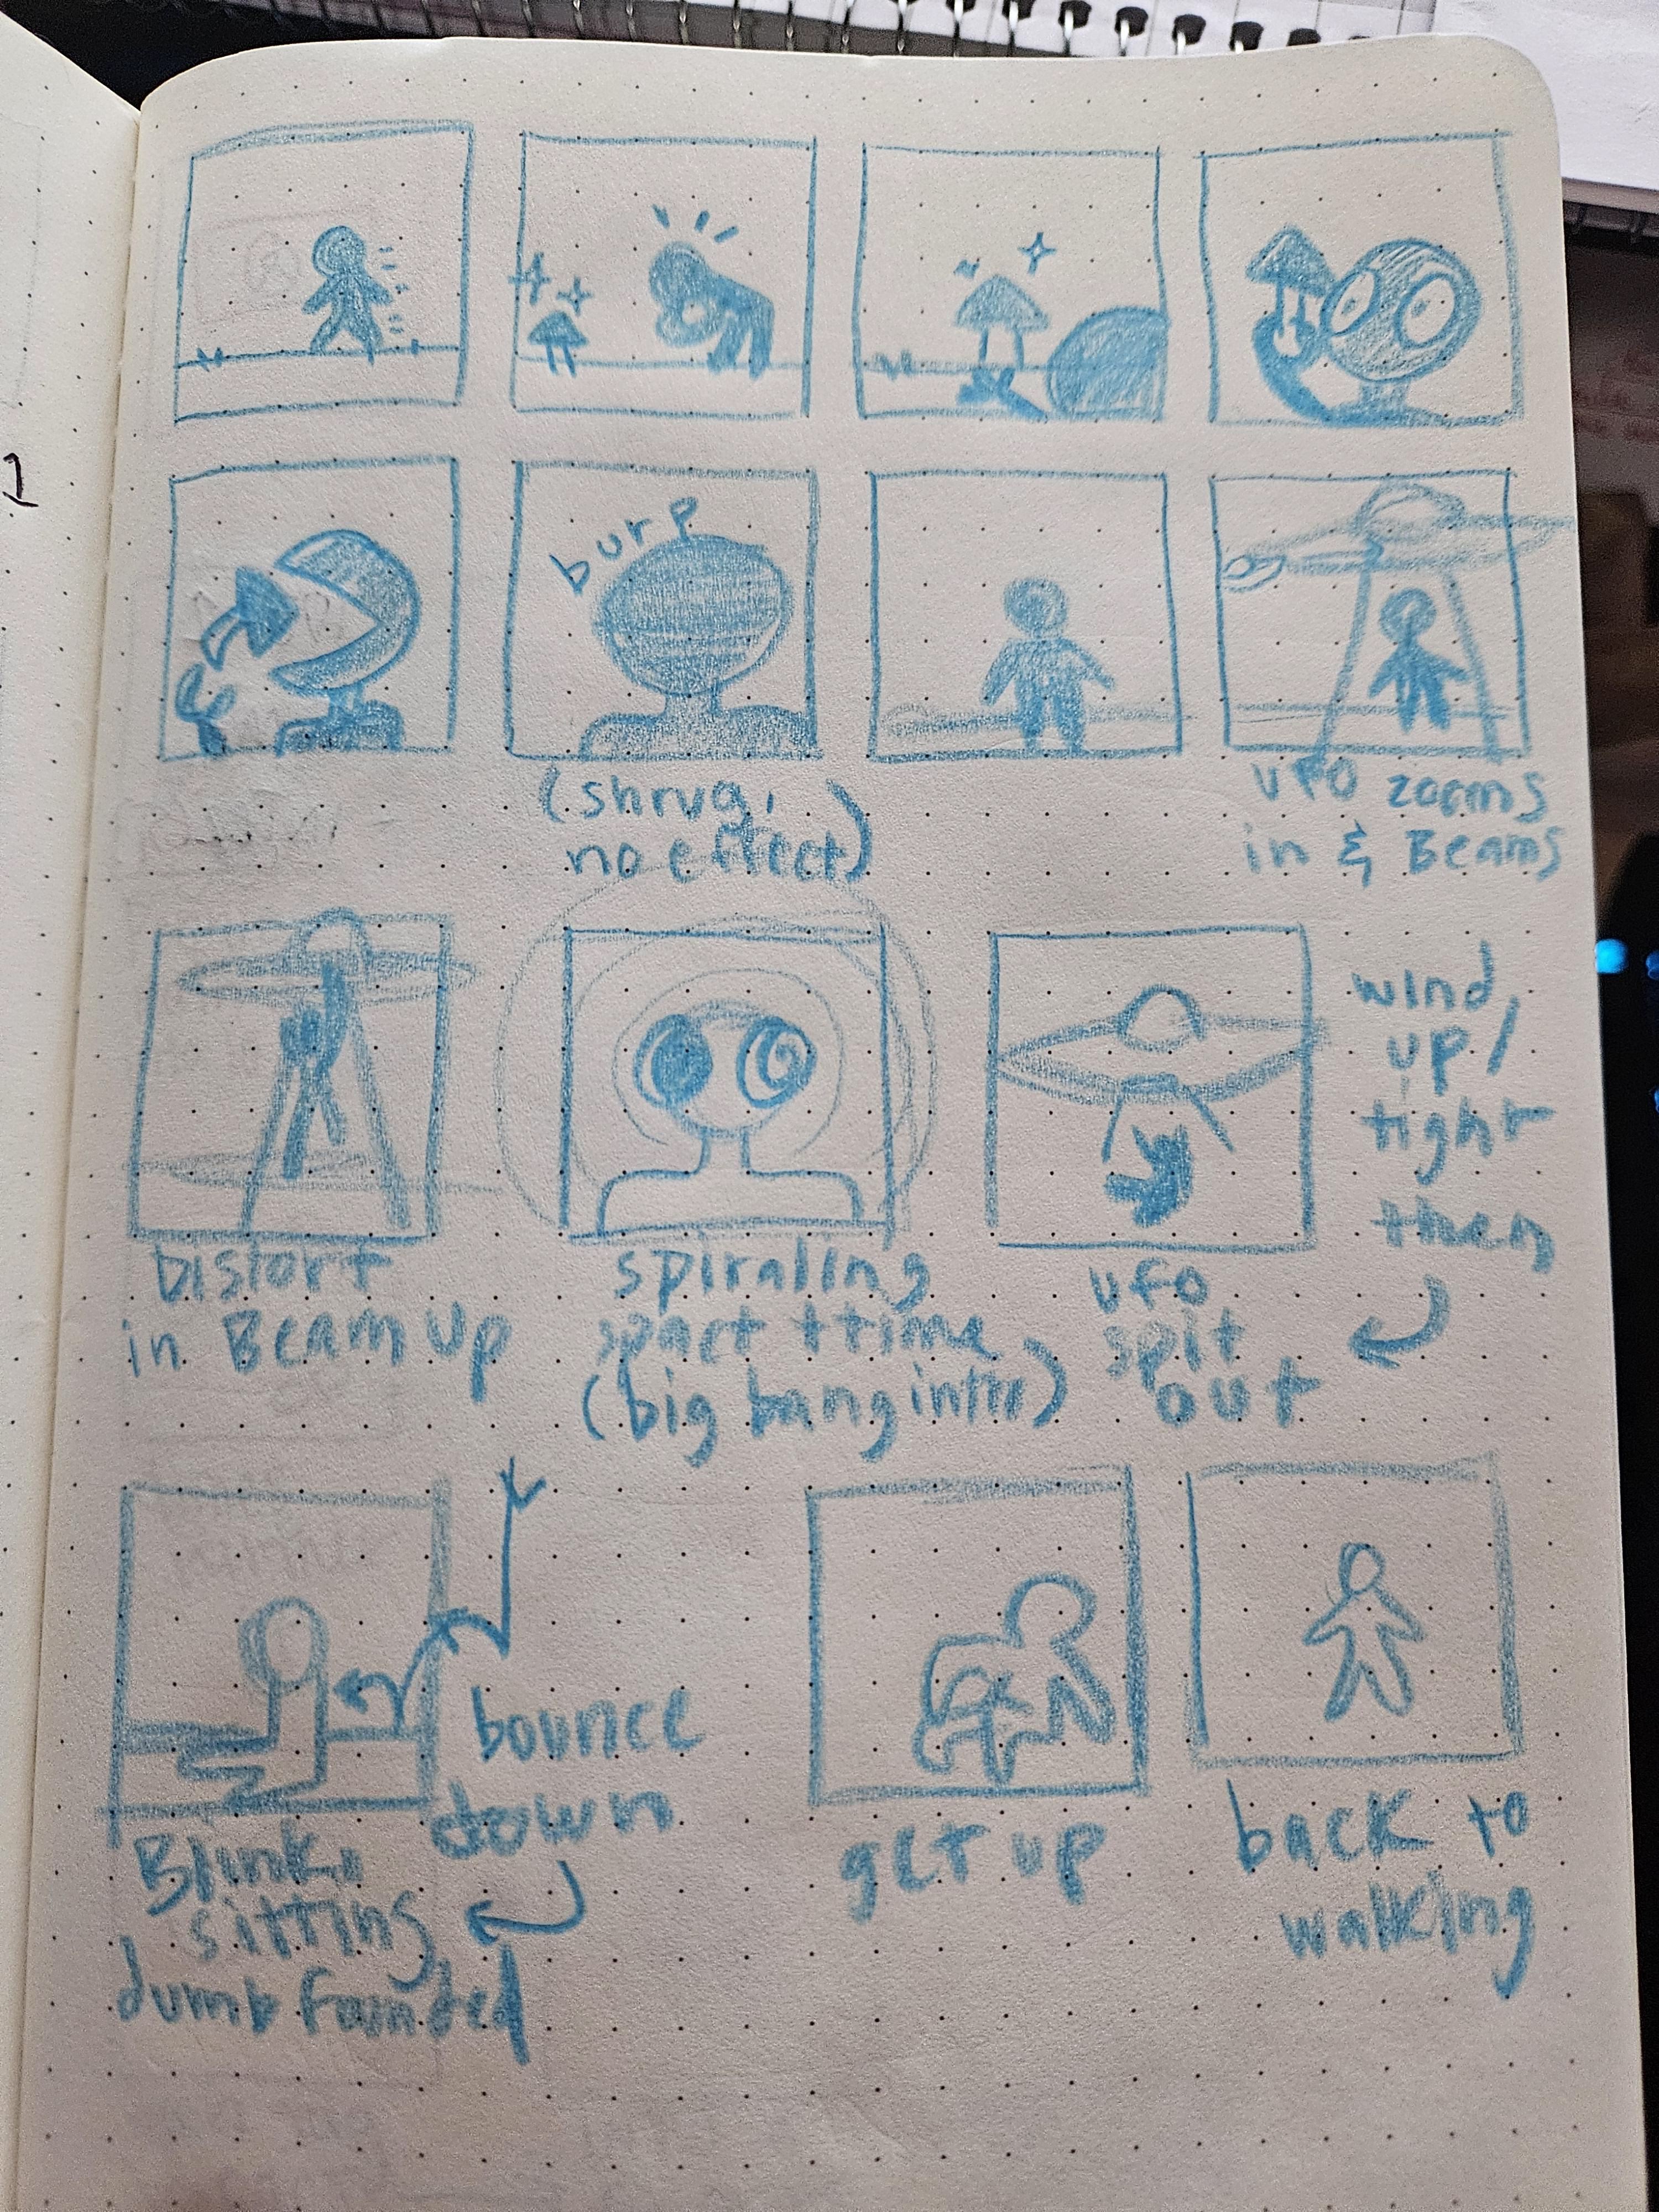 burp
(shrug,
no effect)
UFO zooms
in & Beams
Distort
in Beam Up
spiraling
spact + time
(big bang intro)
wind
up /
tight
then
UFO
spit
out
bounce
down
Blink,
sitting
dumbfounded
get up
back to
walking